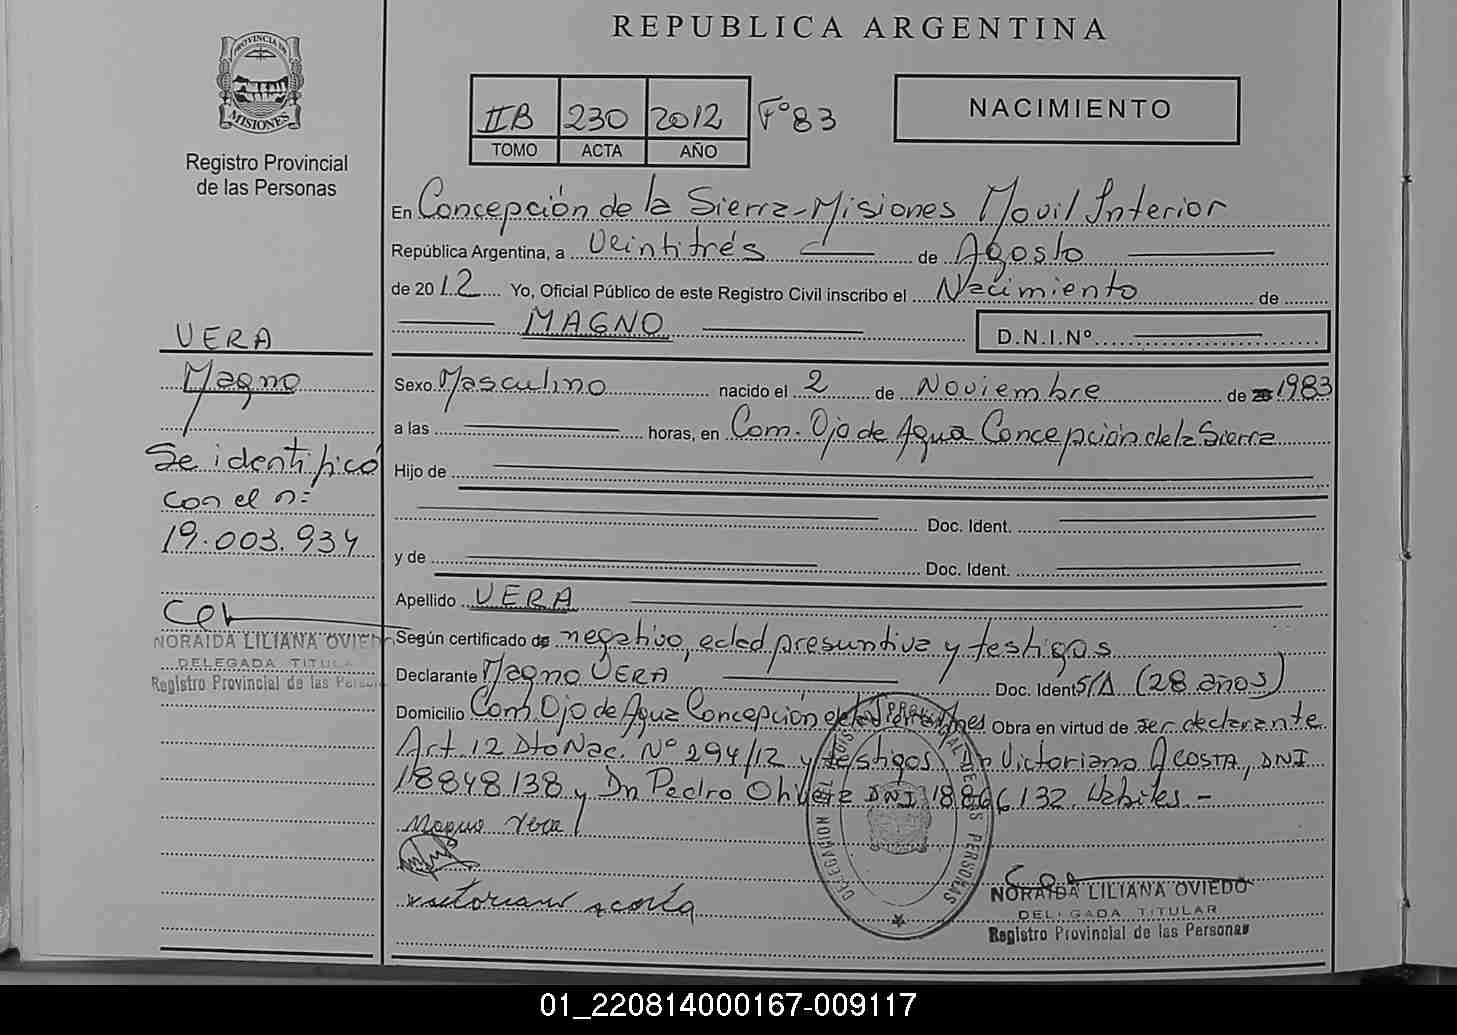 REPUBLICA ARGENTINA
PROVINCIA DE
MISIONES
Registro Provincial
de las Personas
IIB 230 2012 Fº 83
TOMO ACTA AÑO
NACIMIENTO
En Concepción de la Sierra - Misiones Movil Interior
República Argentina, a Veintitrés de Agosto
de 2012 Yo, Oficial Público de este Registro Civil inscribo el Nacimiento de
MAGNO D.N.I.Nº
Sexo Masculino nacido el 2 de Noviembre de 1983
a las horas, en Com. Ojo de Agua Concepción de la Sierra
Hijo de
Doc. Ident.
y de Doc. Ident.
Apellido VERA
Según certificado de negativo, edad presuntiva y testigos
Declarante Magno VERA Doc. Ident S/D (28 años)
Domicilio Com. Ojo de Agua Concepción de la Sierra Obra en virtud de ser declarante
Art. 12 Dto Nac. Nº 294/12 y testigos Dn Victoriano ACOSTA, DNI
18848138 y Dn Pedro DNI 18866132 Hábiles.-
Magno Vera
Victoriano Acosta
NORAIDA LILIANA OVIEDO
DELEGADA TITULAR
Registro Provincial de las Personas
VERA
Magno
Se identificó
con el nº
19.003.934
NORAIDA LILIANA OVIED
DELEGADA TITULA
Registro Provincial de las Person
01_220814000167-009117